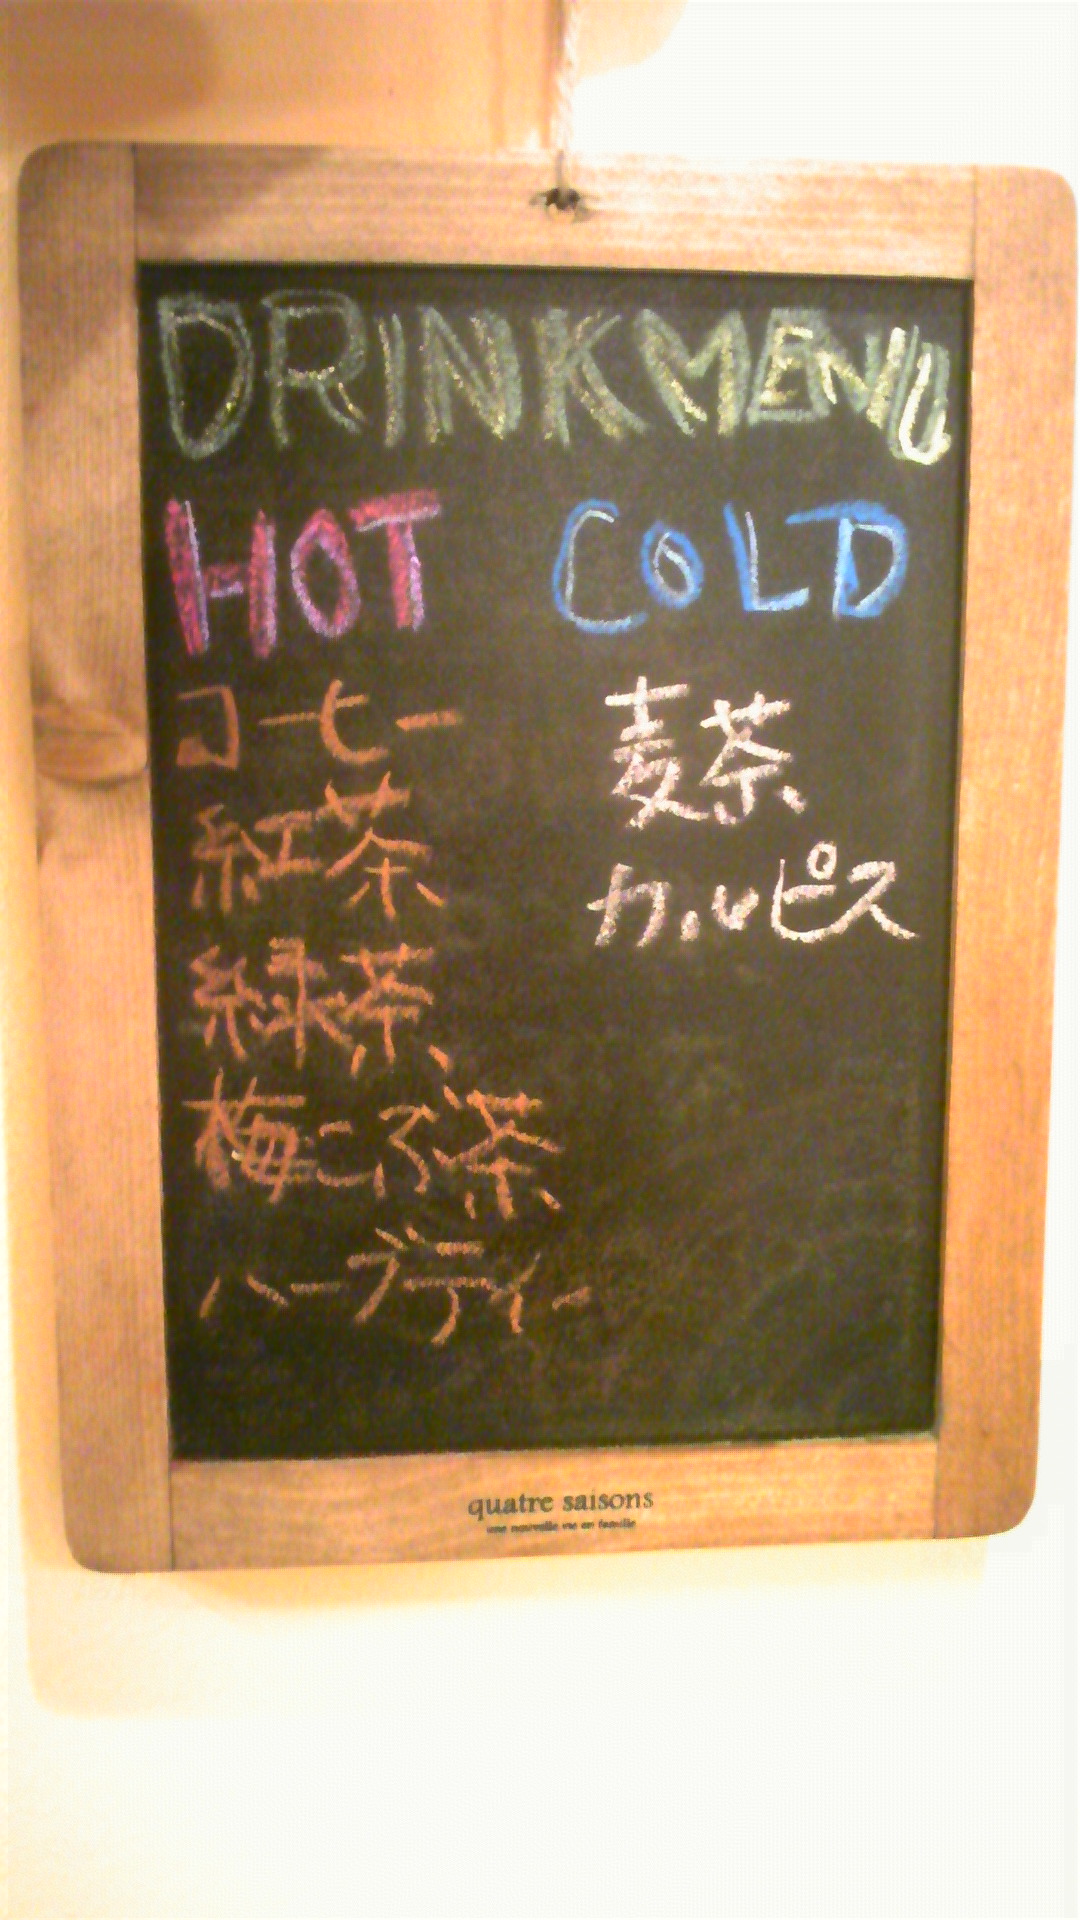 DRINKMENU
HOT
コーヒー
紅茶
緑茶
梅こぶ茶
ハーブティー
COLD
麦茶
カルピス
quatre saisons
une nouvelle vie en famille